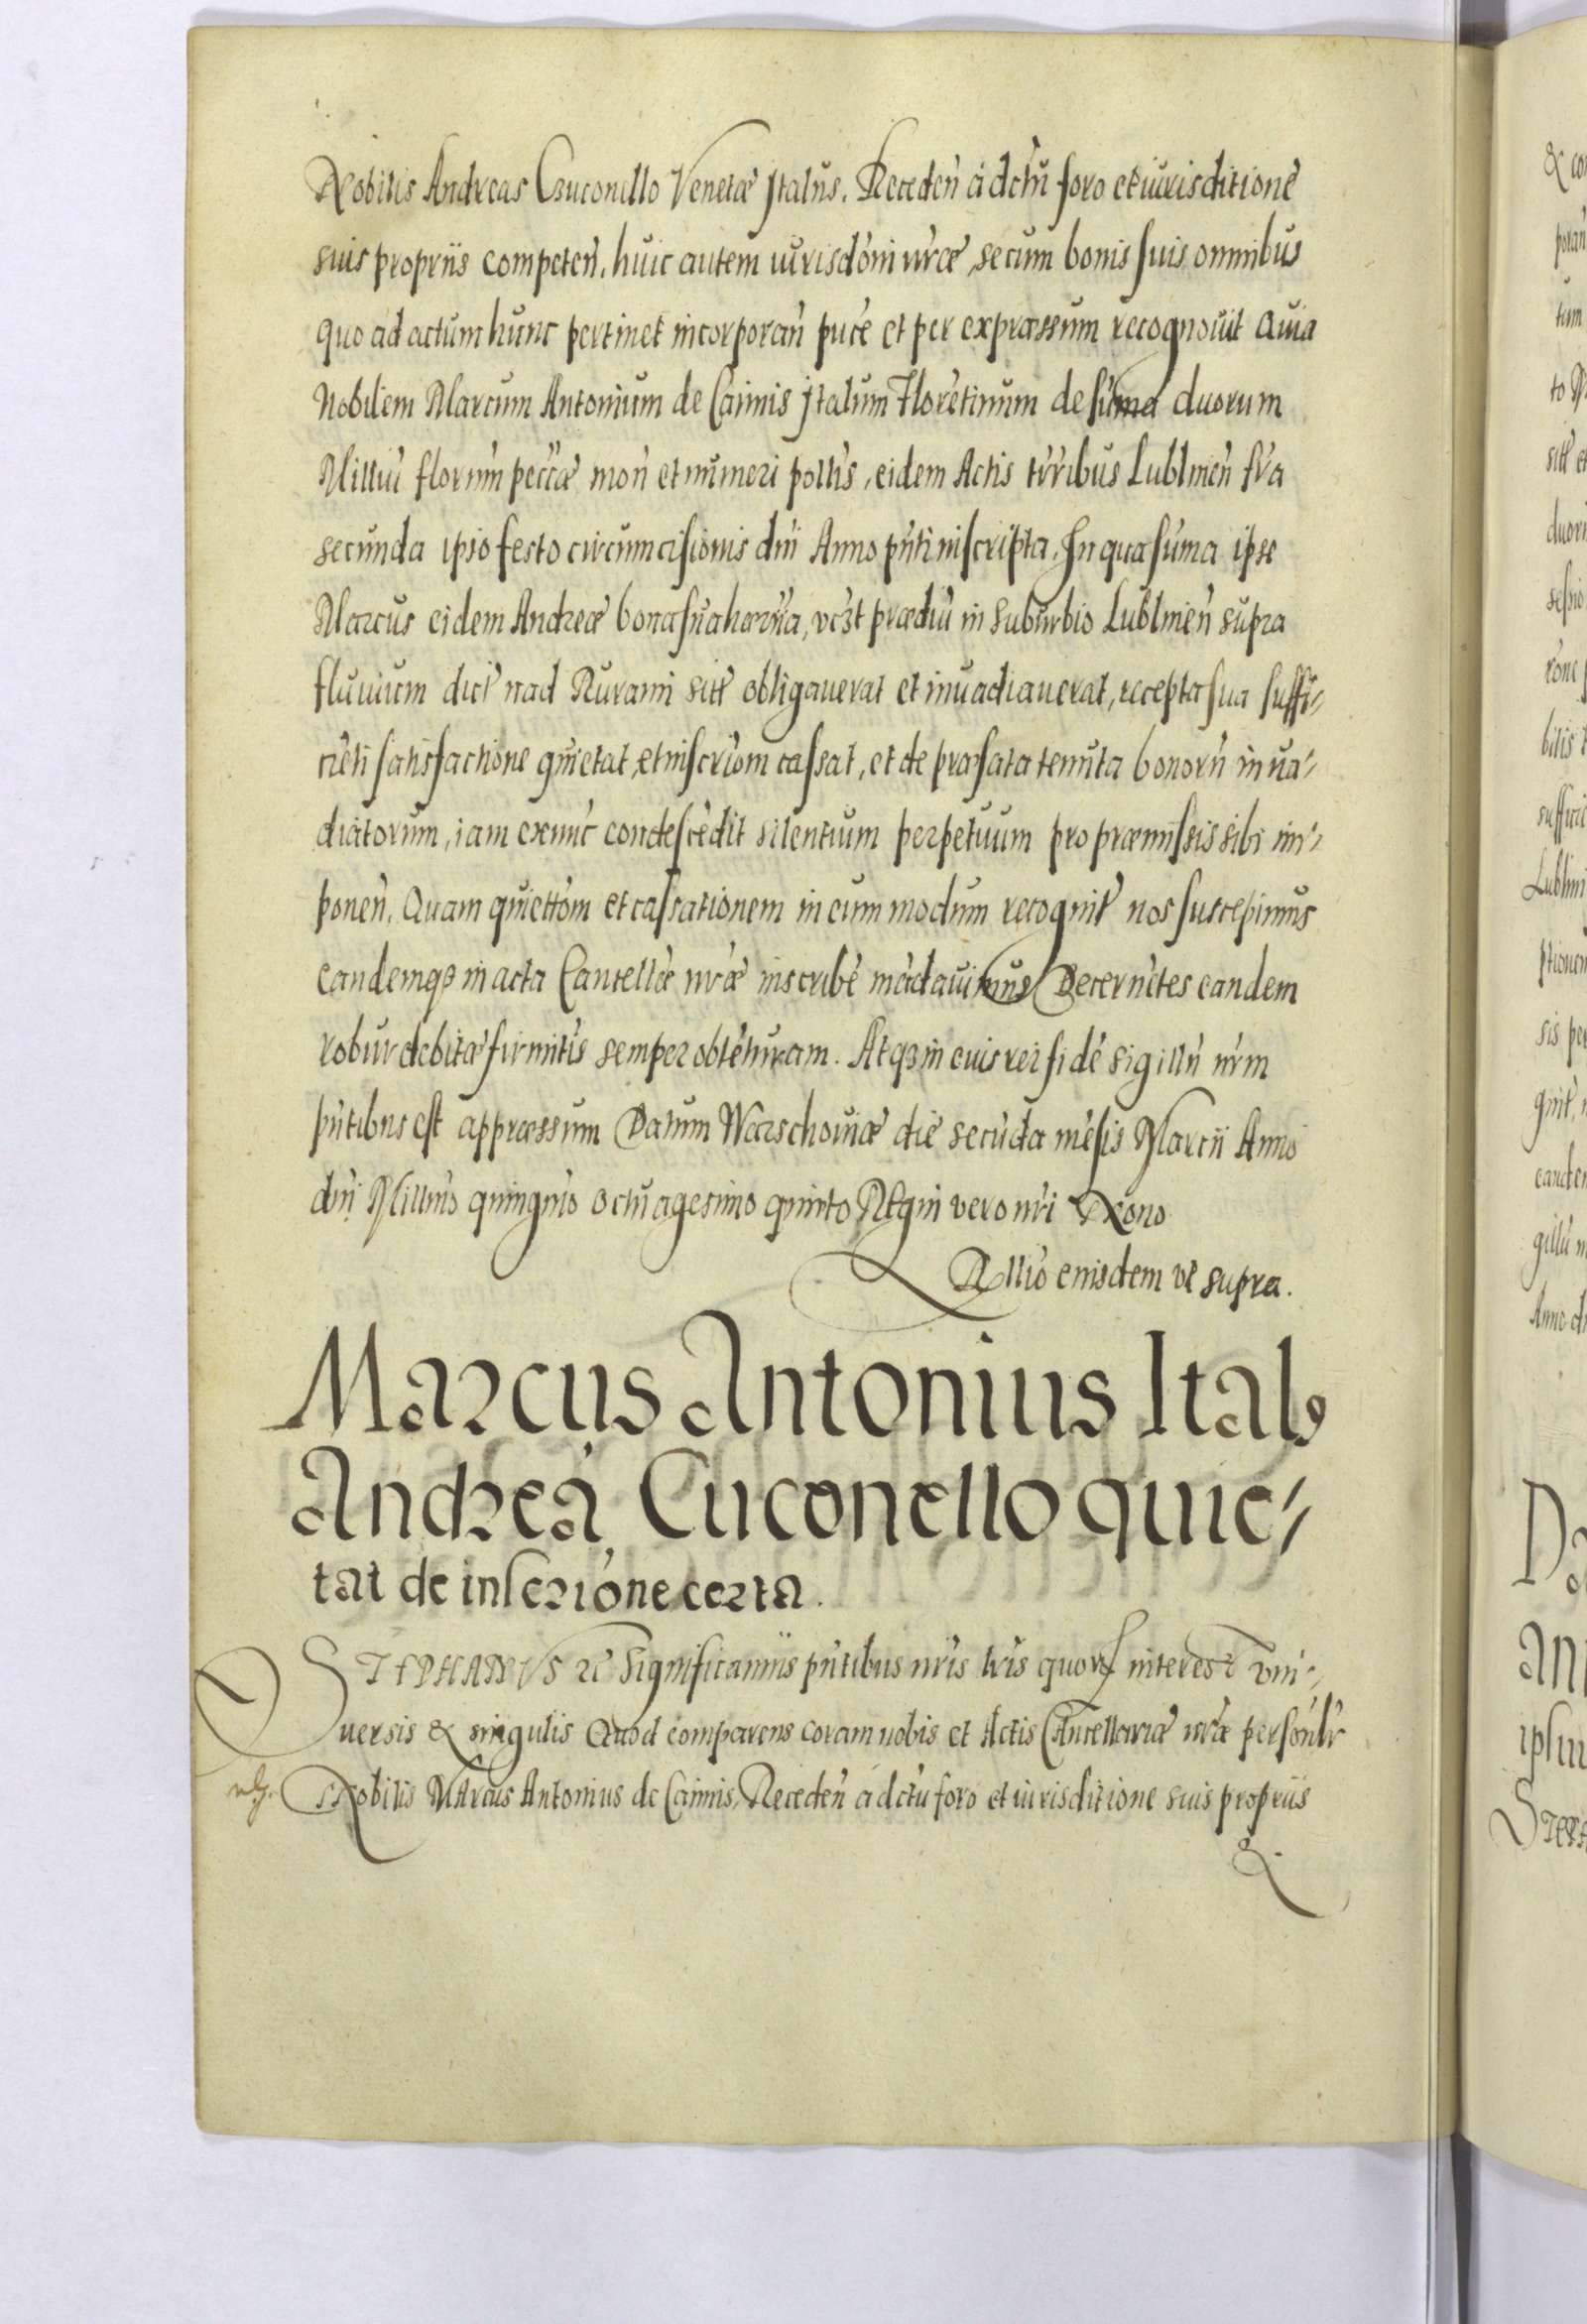 Nobilis Andreas Czuconello Venetæ Italus. Receden a dctũ foro et iurisditione
suis propriis competen. huic autem iurisdoni nræ se cum bonis suis omnibus
quo ad actum hunc pertinet incorporan puce et per expræssum recognouit Quia
Nobilem Marcum Antonium de Caimis Italum Floretinum de suma duorum
Milliũ florum peccæ mon et numeri pollis, eidem Actis trribus Lublinen fra
secunda ipso festo circumcisionis dni Anno pnti inscripta. In qua suma ipse
Marcus eidem Andreæ bona sua hærria, vcst prædiũ in Suburbio Lublinen supra
fluuium dict nad Rurami sitt obligauerat et inuadiauerat, recepta sua suffi-
cieti satisfactione quietat, et inscriom cassat, et de præfata tenuta bonorũ inua-
diatorum, iam exnunc condescedit silentium perpetuum pro præmissis sibi im-
ponen. Quam quiettom et cassationem in eum modum recognit nos suscepimus
eandemq3 in acta Cancellæ nræ inscribe mãdauimus Decernetes eandem
robur debitæ firmitis semper obteturam. Atq3 in cuius rei fide sigillũ nrm
pntibus est appræssum Datum Warschouiæ die secũda mesis Martii Anno
dni Millmo quingmo octuagesimo quinto Regni vero nri Nono
Rllio eiusdem vt supra.
Marcus Antonius Ital9
Andreã Cuconello quie-
tat de inscrione certa.
STEPHANVS &c Significamus pntibus nris lris quorũ interest vni-
uersis & singulis Quod comparens coram nobis et Actis Cancellariæ nræ personlr
Nobilis Marcus Antonius de Caimis, Receden a dctu foro et iurisditione suis propriis
&.